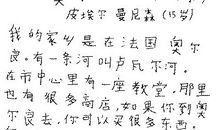 皮埃尔 曼尼森 (15岁)
我的家乡是在法国 奥尔
良。有一条河叫卢瓦尔河。
在市中心里有一座教堂，那里
也有很多商店，如果你到奥
尔良去，你可以买很多东西。